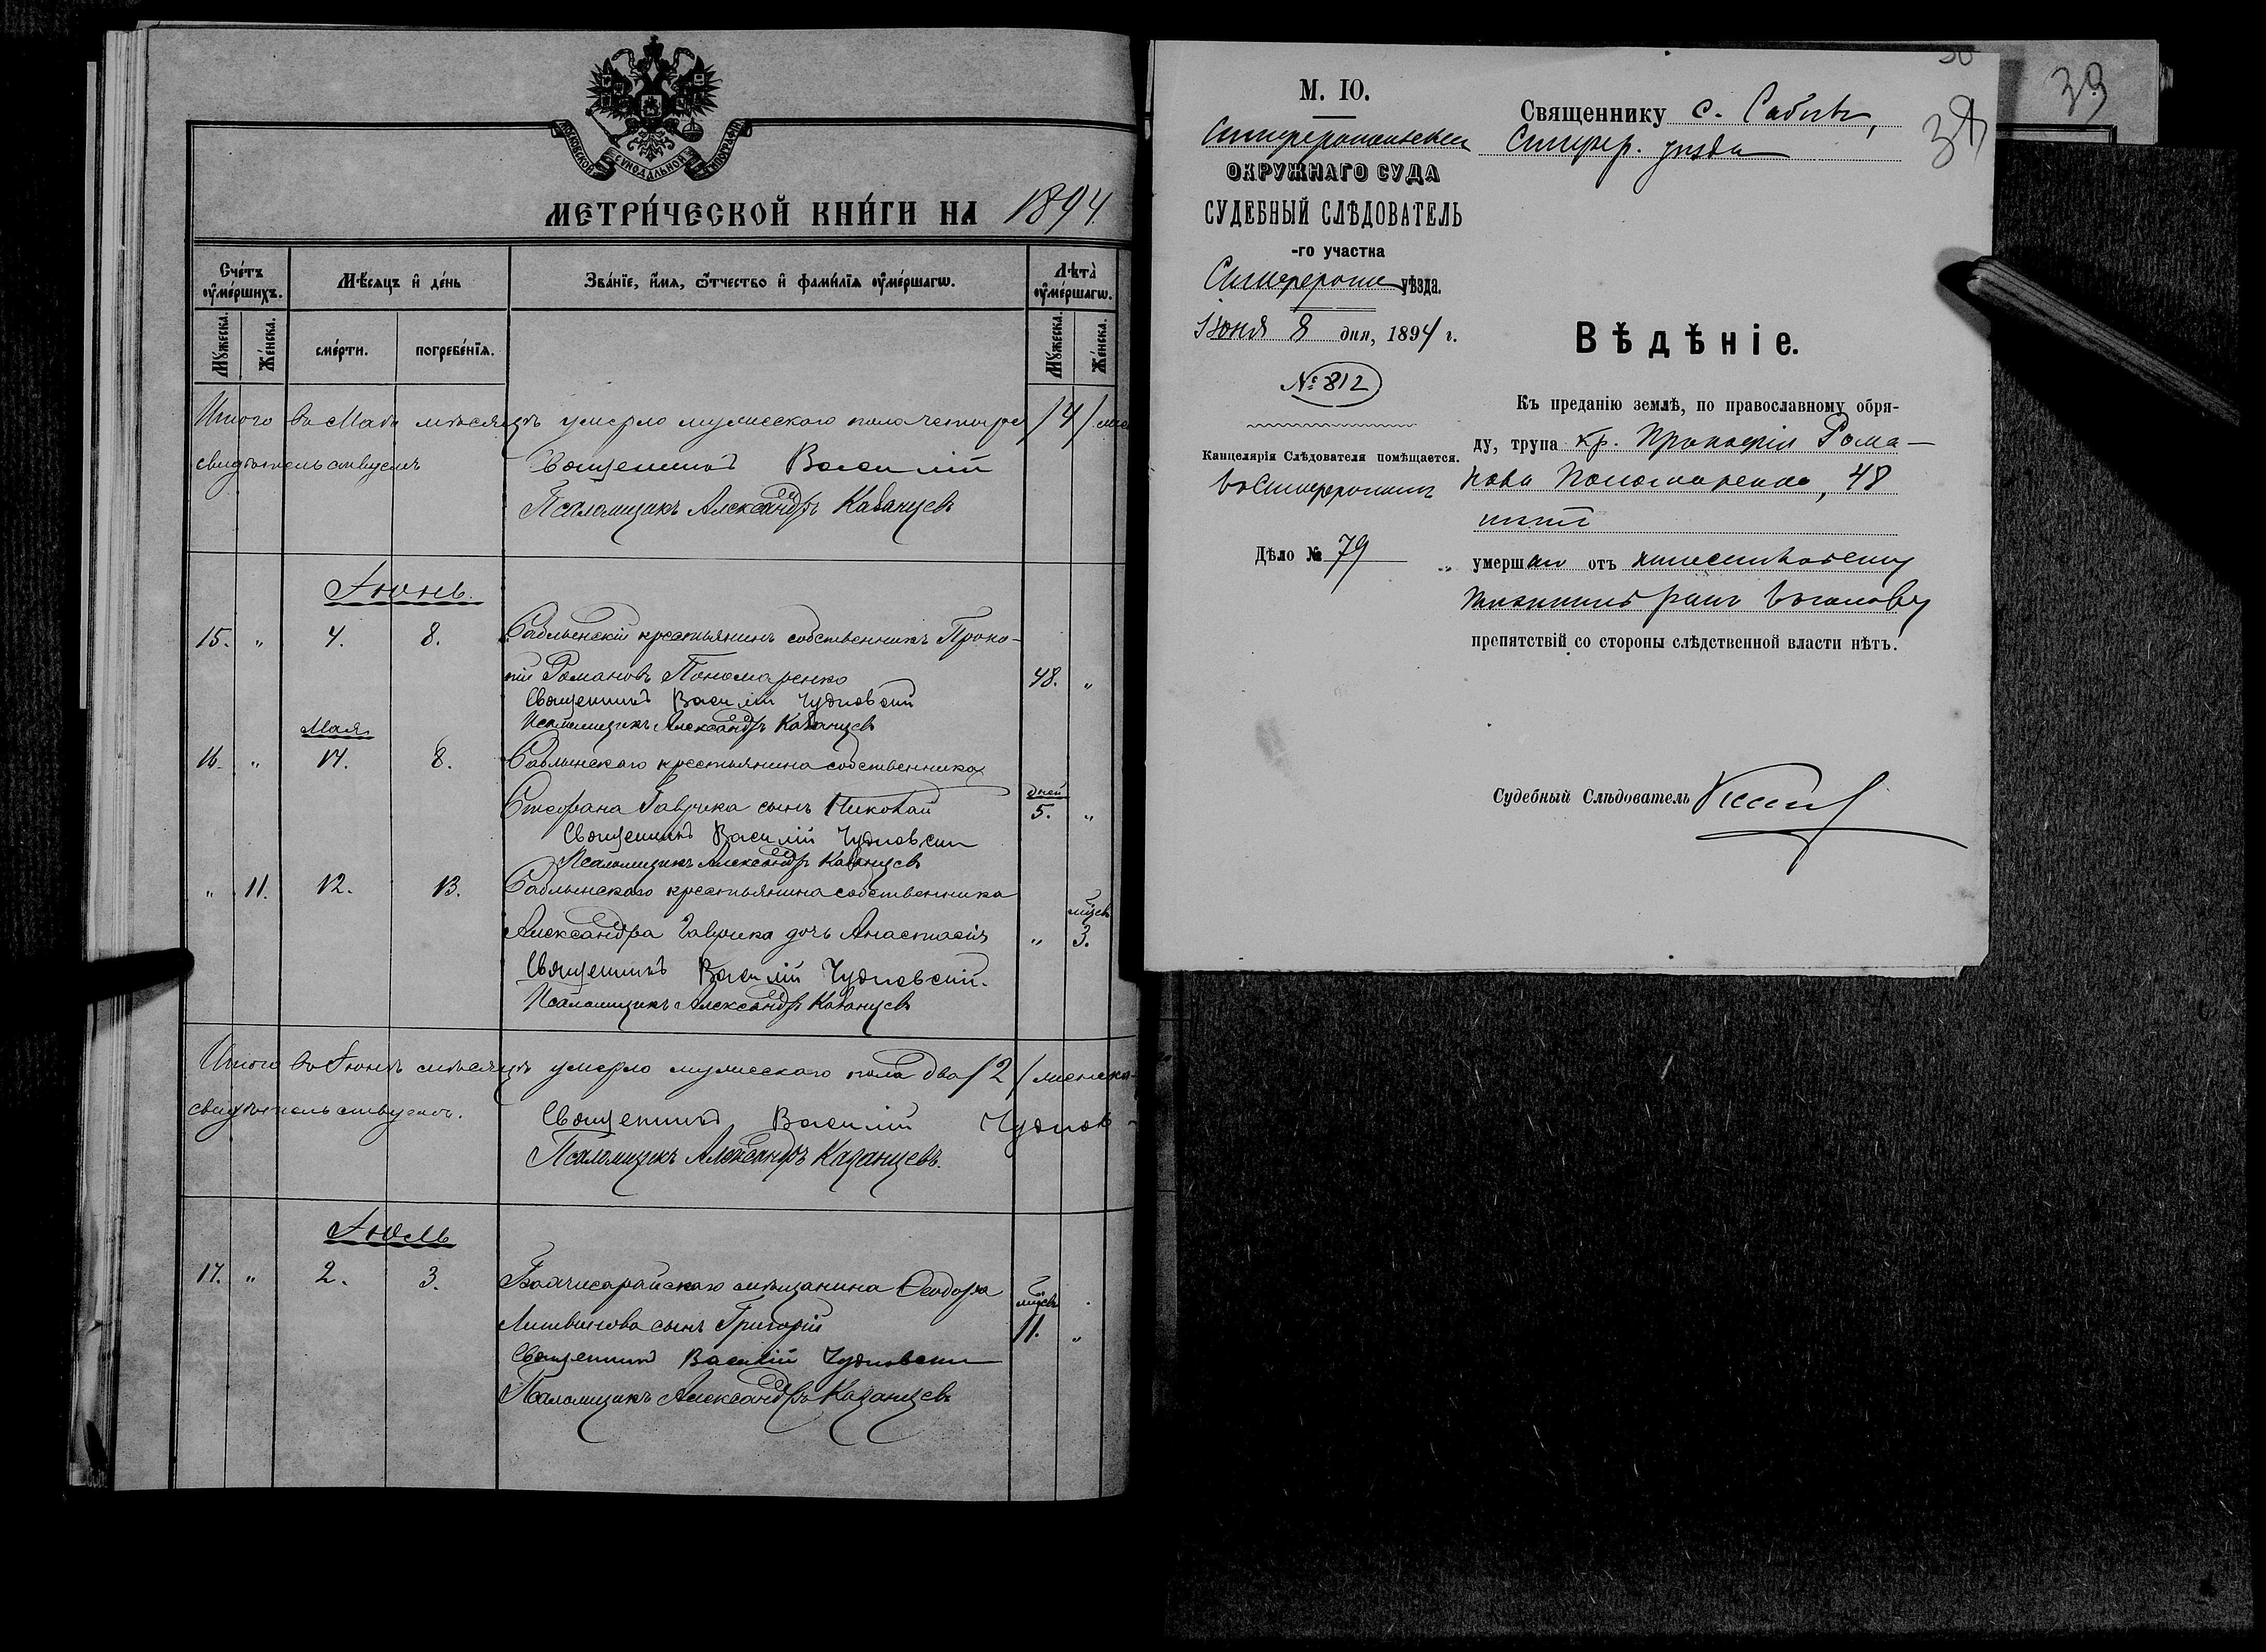 МОСКОВСКОЙ СѴНОДАЛЬНОЙ ТИПОГРАФІИ
МЕТРИ́ЧЕСКОЙ КНИ́ГИ НА 1894.
Сче́тъ ᲂу҆ме́ршихъ.
Мѣ́сяцъ и҆ де́нь
Зва́нїе, и҆́мя, ѻ҆́тчество и҆ фами́лїя ᲂу҆ме́ршагѡ.
Лѣта̀ ᲂу҆ме́ршагѡ.
Мꙋ́жеска.
Же́нска.
сме́рти.
погребе́нїя.
Мꙋ́жеска.
Же́нска.
Итого въ Маѣ мѣсяцѣ умерло мужескаго пола четыре /4/
свидѣтельствуемъ Священникъ Василій
Псаломщикъ Александръ Казанцевъ
Іюнь.
15. „ 4. 8. Саблынскій крестьянинъ собственникъ Проко-
пій Романовъ Пономаренко 48. „
Священникъ Василій Чудновскій
Псаломщикъ Александръ Казанцевъ
Мая
16. „ 17. 8. Саблынскаго крестьянина собственника
Стефана Гаврика сынъ Николай дней 5. „
Священникъ Василій Чудновскій
Псаломщикъ Александръ Казанцевъ
„ 11. 12. 13. Саблынскаго крестьянина собственника
Александра Гаврика дочь Анастасія „ мцсв 3.
Священникъ Василій Чудновскій.
Псаломщикъ Александръ Казанцевъ
Итого въ Іюнѣ мѣсяцѣ умерло мужескаго пола два /2/ женска-
свидѣтельствуемъ. Священникъ Василій Чуднов-
Псаломщикъ Александръ Казанцевъ.
Іюль
17. „ 2. 3. Бахчисарайскаго мѣщанина Ѳеодора
Литвинова сынъ Григорій мцсв 11. „
Священникъ Василій Чудновскій
Псаломщикъ Александръ Казанцевъ
39
38
М. Ю.
Симферопольскаго
ОКРУЖНАГО СУДА
СУДЕБНЫЙ СЛѢДОВАТЕЛЬ
-го участка
Симфероп уѣзда.
Іюня 8 дня, 1894 г.
№ 812
Канцелярія Слѣдователя помѣщается.
въ Симферополѣ
Дѣло № 79
Священнику с. Саблы,
Симфер. уѣзда
Вѣдѣніе.
Къ преданію землѣ, по православному обря-
ду, трупа кр. Прокофія Рома-
нова Пономаренко, 48
лѣтъ
умершаго отъ
препятствій со стороны слѣдственной власти нѣтъ.
Судебный Слѣдователь